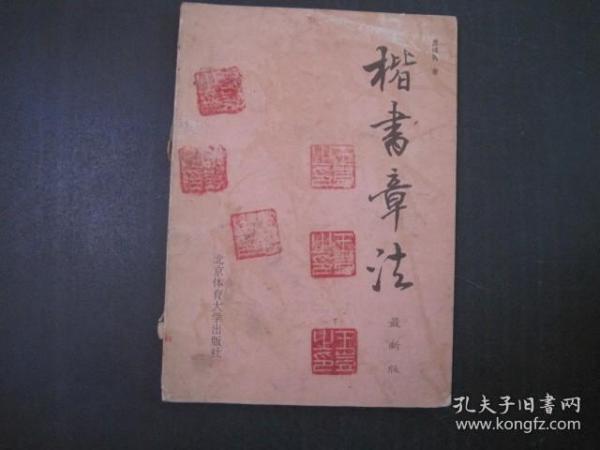 楷书章法
最新版
北京体育大学出版社
孔夫子旧书网
www.kongfz.com